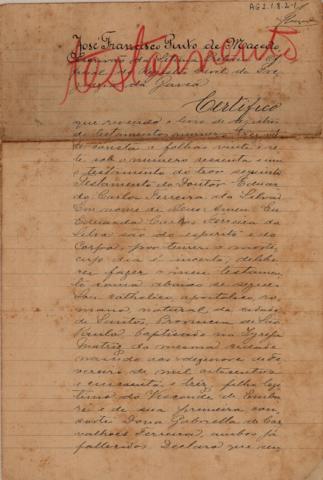 AG2.1.8.2-1
José Francisco Pinto de Macedo,
testamento
Certifico
que revendo o livro de registro
de testamentos numero
consta a folhas vinte e
sob o numero sessenta e um
o testamento do teor seguinte
Testamento do Doutor Eduar
do Carlos Ferreira da Silva
Em nome de Deos Amen. Eu
Eduardo Carlos Ferreira da
Silva são de espirito e de
corpo, por temer a morte,
cujo dia é incerto, delibe
rei fazer o meu testamen
to como abaixo se segue
Sou catholico, apostolico, ro
mano, natural da cidade
de Santos, Provincia de São
Paulo baptisado na Igreja
Matriz da mesma cidade
nascido aos dezenove de Fe
vereiro de mil oitocentos
e cincoenta e trez, filho legi
timo do Visconde de Emba
ré e de sua primeira con
sorte Dona Gabriella de Car
valhaes Ferreira, ambos já
fallecidos. Declaro que